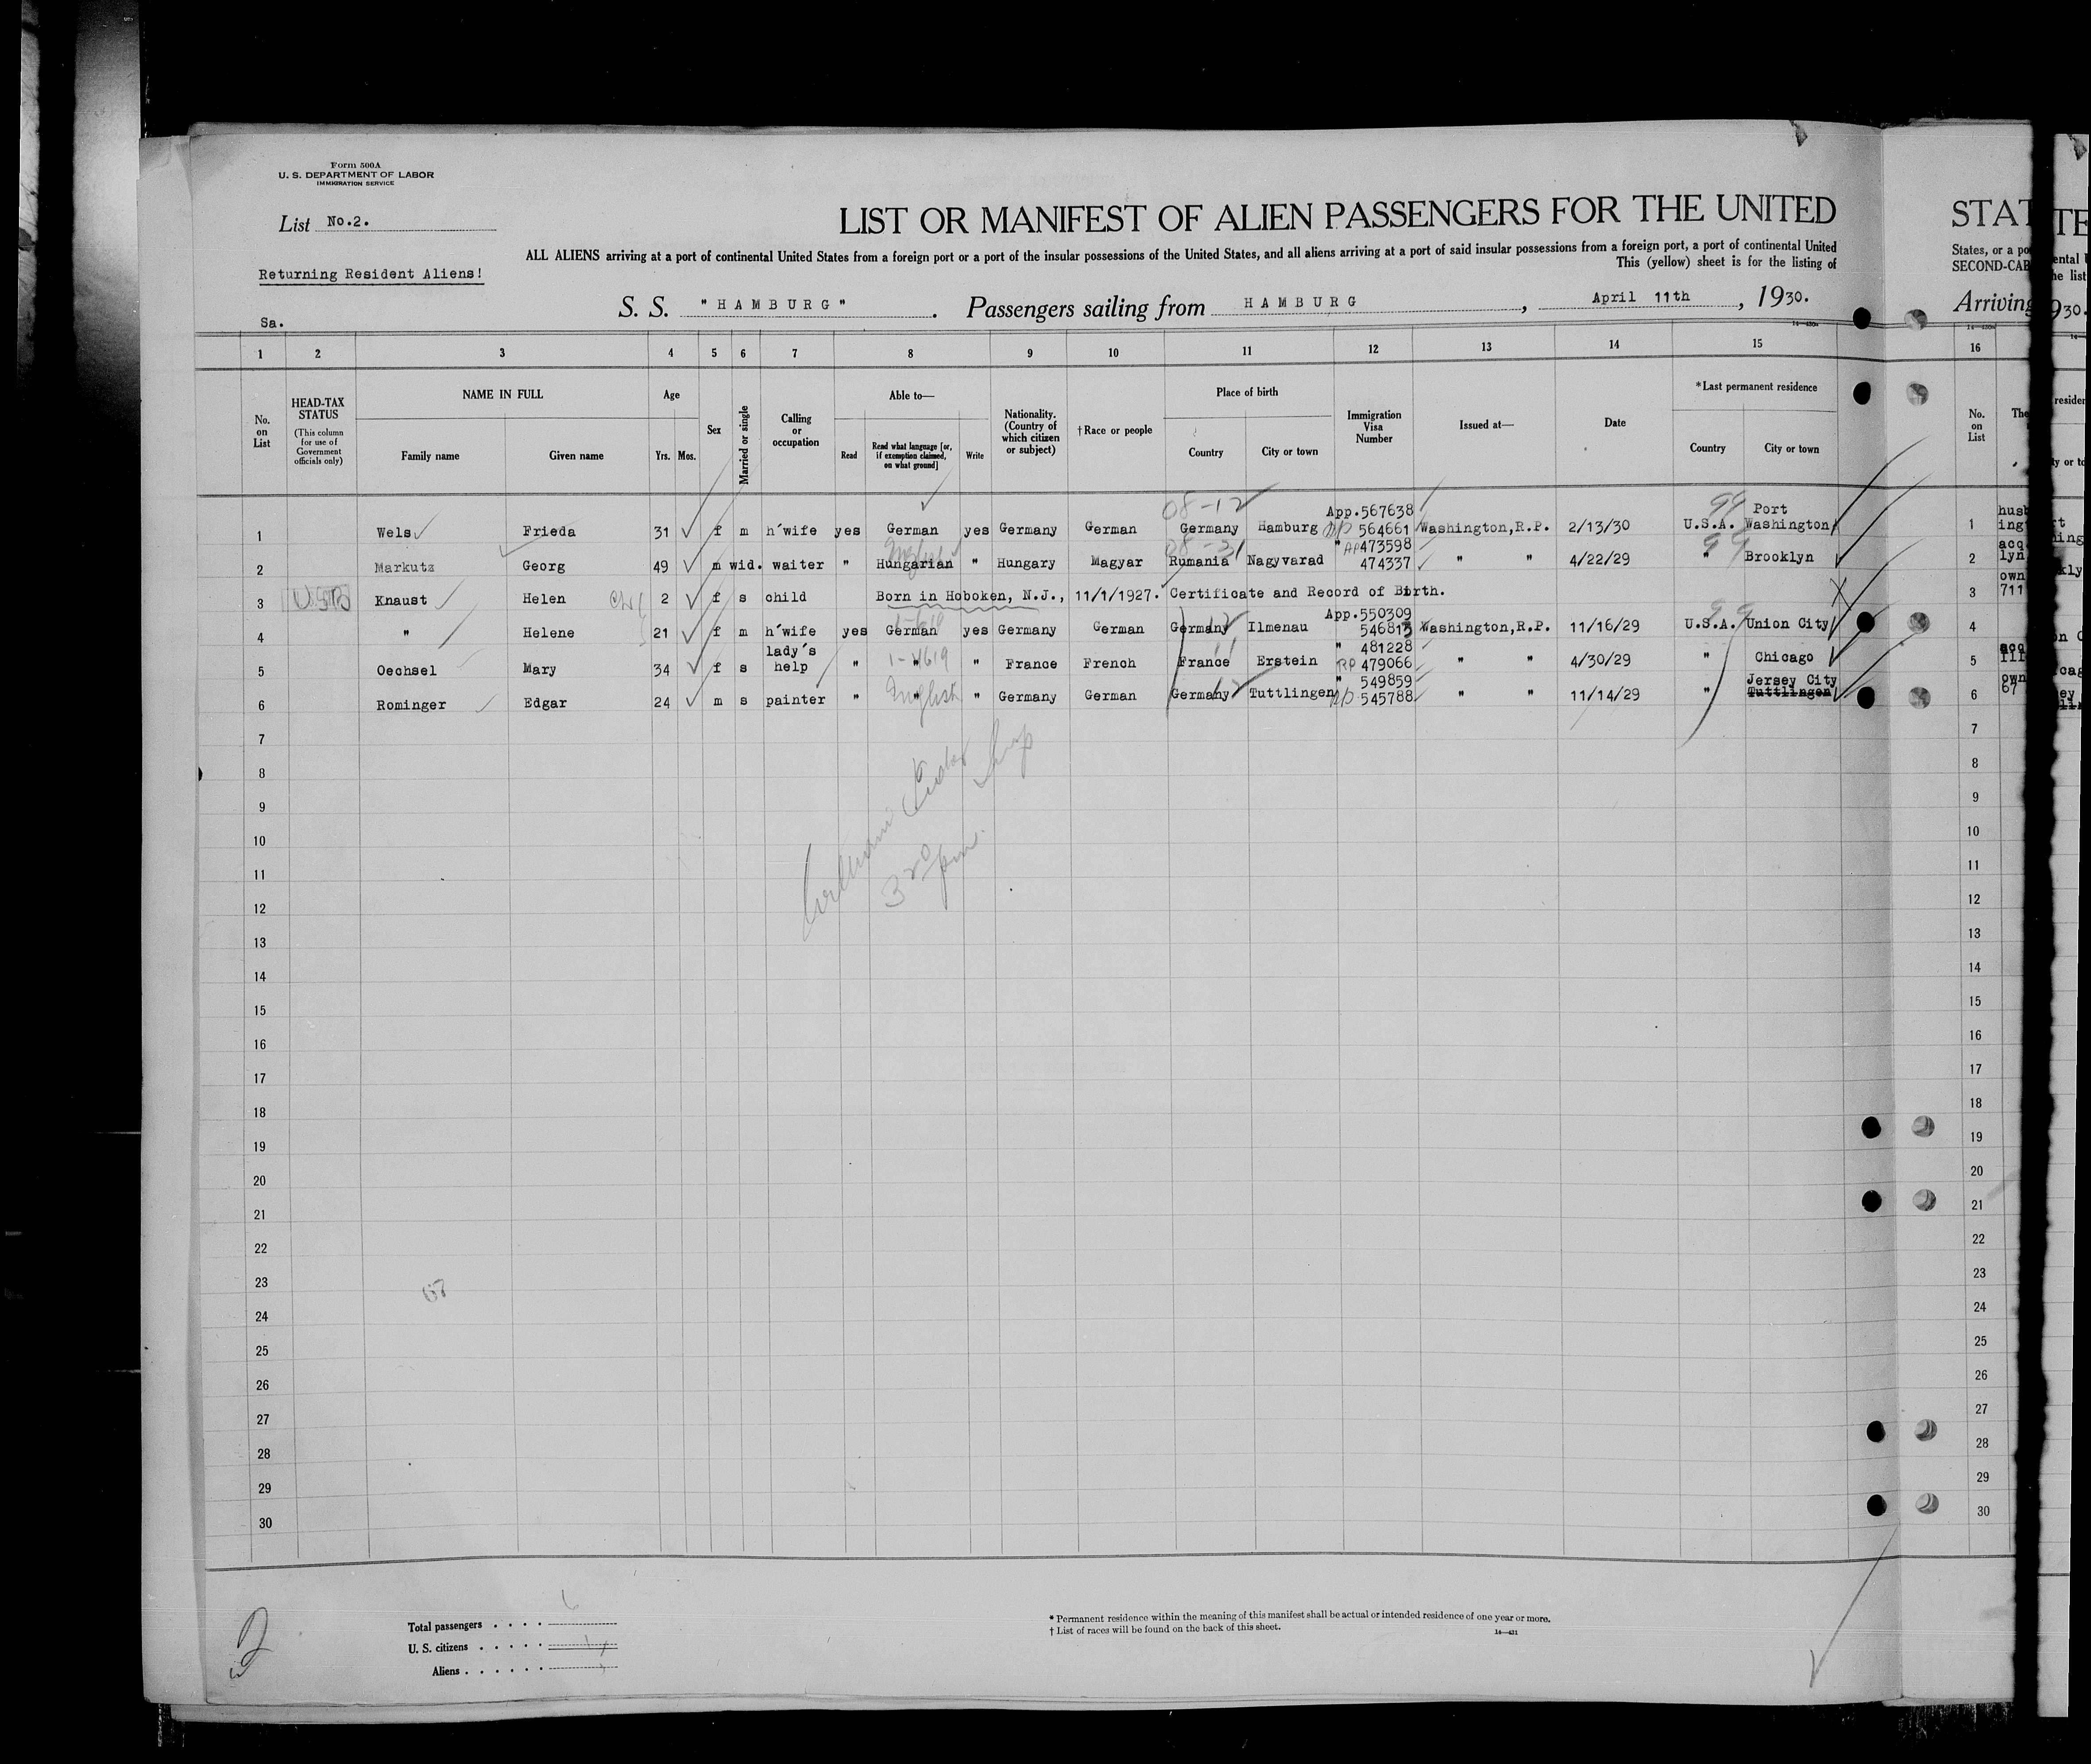 Form 500A
U. S. DEPARTMENT OF LABOR
IMMIGRATION SERVICE
List No.2.
Returning Resident Aliens!
Sa.
LIST OR MANIFEST OF ALIEN PASSENGERS FOR THE UNITED
ALL ALIENS arriving at a port of continental United States from a foreign port or a port of the insular possessions of the United States, and all aliens arriving at a port of said insular possessions from a foreign port, a port of continental United
This (yellow) sheet is for the listing of
S. S. "HAMBURG". Passengers sailing from HAMBURG, April 11th, 1930.
STAT
States, or a po
SECOND-CAB
Arriving
1 2 3 4 5 6 7 8 9 10 11 12 13 14 15 16
No. on List
HEAD-TAX STATUS
(This column for use of Government officials only)
NAME IN FULL
Family name Given name
Age
Yrs. Mos.
Sex
Married or single
Calling or occupation
Able to—
Read
Read what language [or, if exemption claimed, on what ground]
Write
Nationality. (Country of which citizen or subject)
†Race or people
Place of birth
Country City or town
Immigration Visa Number
Issued at—
Date
*Last permanent residence
Country City or town
No. on List
The
08-12 App.567638 99 Port
1 Wels Frieda 31 f m h'wife yes German yes Germany German Germany Hamburg 564661 Washington,R.P. 2/13/30 U.S.A. Washington
English 08-31 " 473598 99
2 Markutz Georg 49 m wid. waiter " Hungarian " Hungary Magyar Rumania Nagyvarad 474337 " " 4/22/29 " Brooklyn
3 Knaust Helen 2 f s child Born in Hoboken, N.J., 11/1/1927. Certificate and Record of Birth.
App.550309 99
4 " Helene 21 f m h'wife yes German yes Germany German Germany Ilmenau 546813 Washington,R.P. 11/16/29 U.S.A. Union City
lady's " 481228
5 Oechsel Mary 34 f s help " " " France French France Erstein 479066 " " 4/30/29 " Chicago
English " 549859 Jersey City
6 Rominger Edgar 24 m s painter " " " Germany German Germany Tuttlingen 545788 " " 11/14/29 " Tuttlingen
1 husb
ing
2 acq
lyn
3 own
711
4
5 acq
Ill
6 own
67
7 7
8 8
9 9
10 10
11 11
12 12
13 13
14 14
15 15
16 16
17 17
18 18
19 19
20 20
21 21
22 22
23 23
24 24
25 25
26 26
27 27
28 28
29 29
30 30
3 20 pm.
67
2
Total passengers . . . . 6
U. S. citizens . . . . . 1
Aliens . . . . . .
* Permanent residence within the meaning of this manifest shall be actual or intended residence of one year or more.
† List of races will be found on the back of this sheet.
14—421